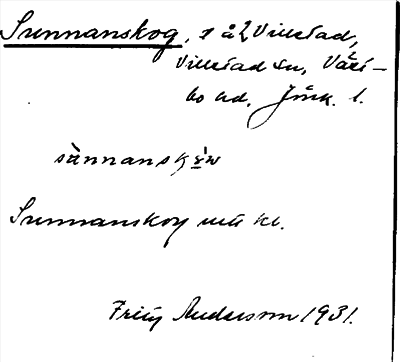 Sunnanskog, 1 å 2 Villstad,
Villstad sn, Västbo hd, Jönk. l.
sùnnanskɷw
Sunnanskog utt. kl.
Fritz Anderson 1931.